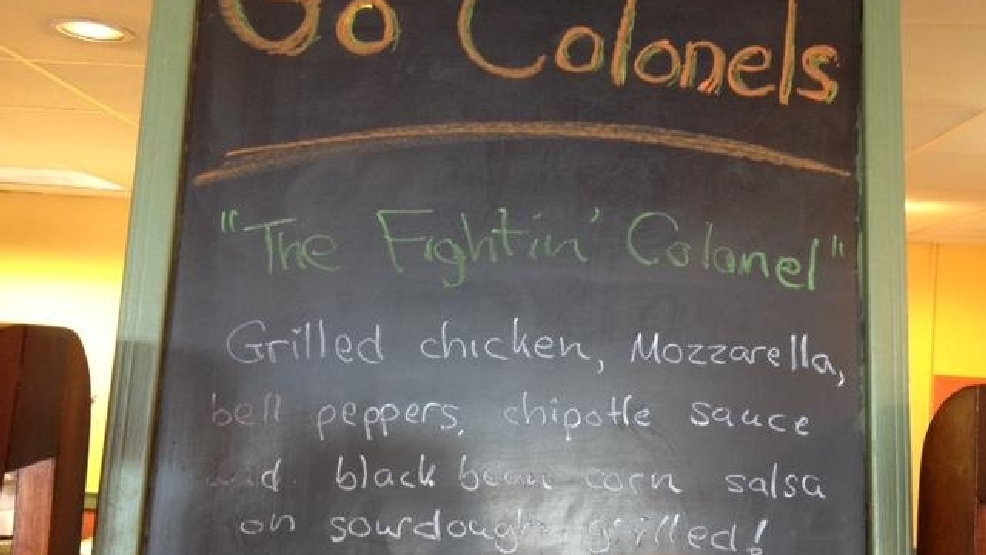 Go Colonels
"The Fightin' Colonel"
Grilled chicken, Mozzarella,
bell peppers, chipotle sauce
and black bean corn salsa
on sourdough grilled!